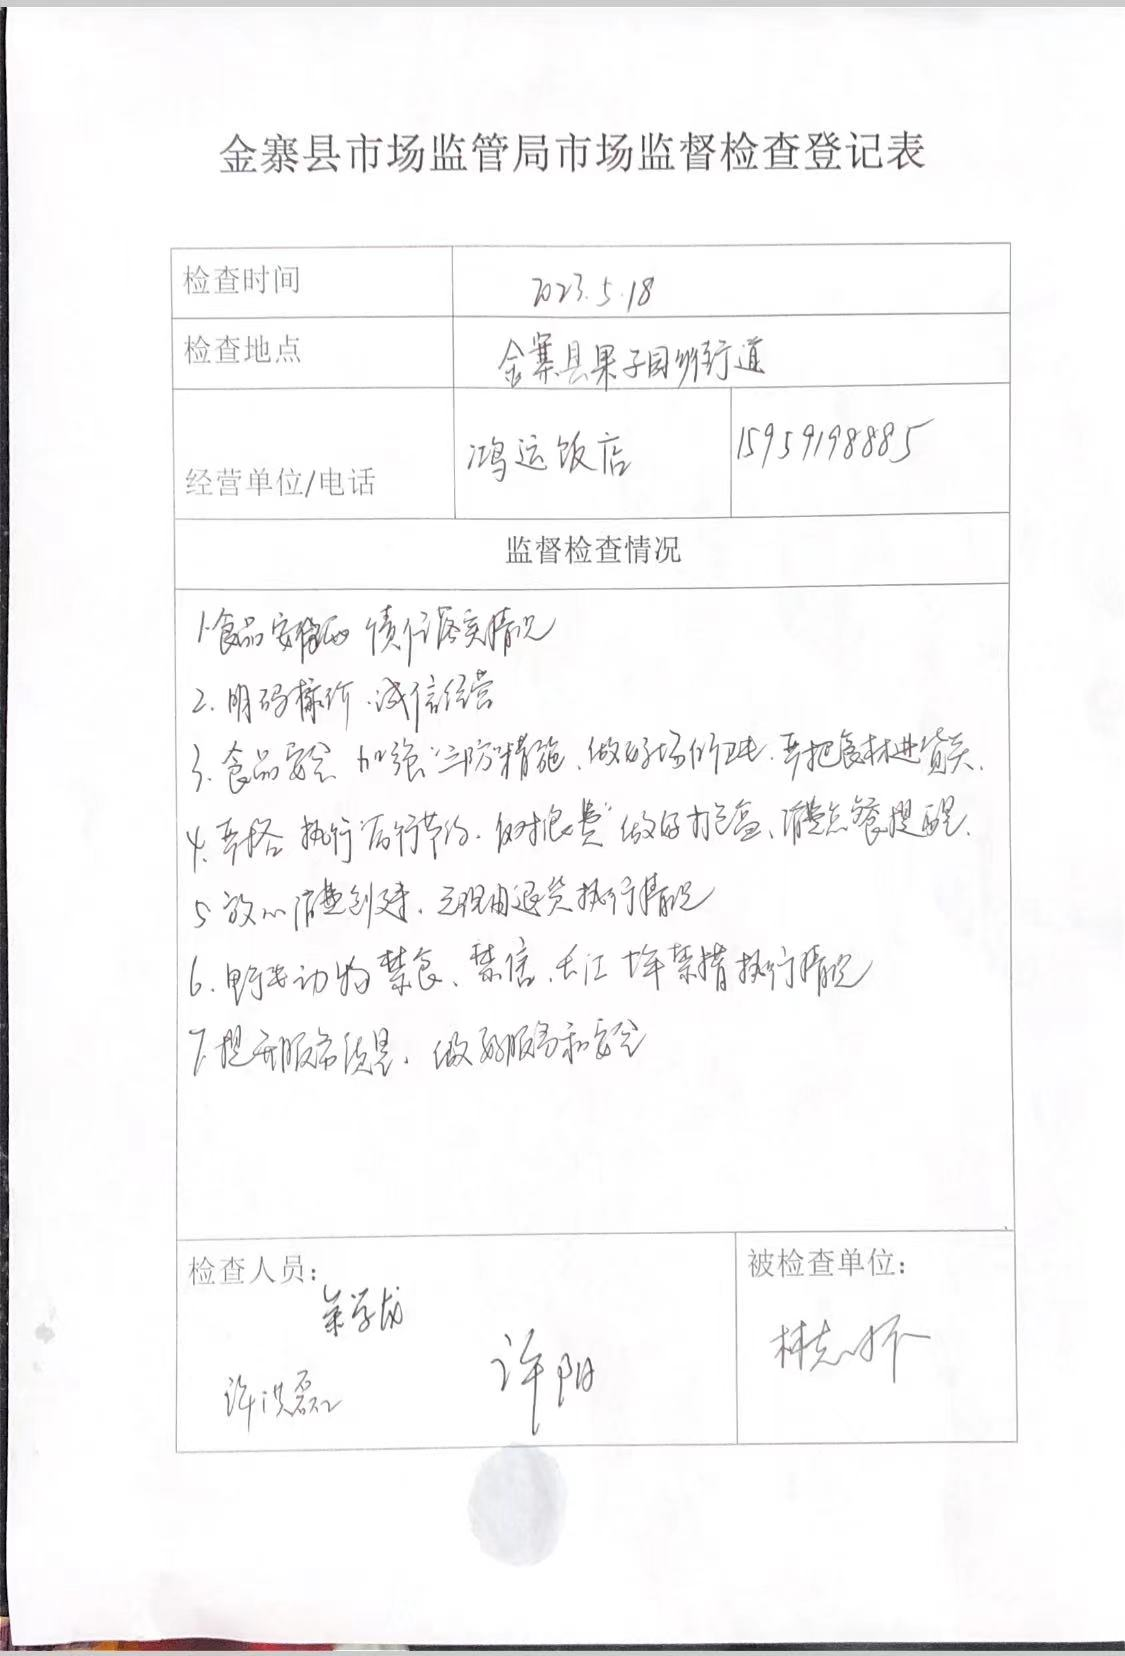 金寨县市场监管局市场监督检查登记表
检查时间 2023.5.18
检查地点 金寨县果子园乡街道
经营单位/电话 鸿运饭店 15959198885
监督检查情况
1.食品安全 责任落实情况
2.明码标价.诚信经营
3.食品安全 加强“三防”措施、做好场所卫生.严把食材进货关.
4.严格执行“厉行节约.反对浪费”做好打包盒、消费点餐提醒.
5 放心消费创建、无理由退货执行情况
6.野生动物禁食、禁售、长江十年禁捕执行情况
7.提升服务质量.做好服务和安全
检查人员:
许洪磊
许阳
被检查单位:
林志